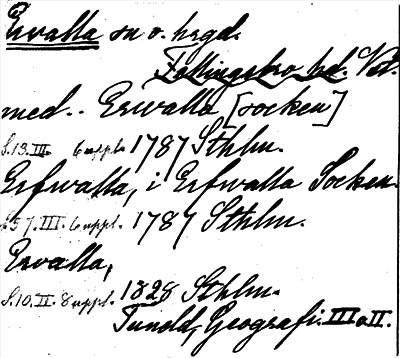 Ervalla sn o. hrgd.
Fellingsbro hd. Vstm.
med.. Erwalla [socken]
S. 13. III. 6 uppl. 1787 Sthlm.
Erfwalla, i Erfwalla Socken.
S. 57. III. 6 uppl. 1787 Sthlm.
Ervalla,
S. 10. II. 8 uppl. 1828 Sthlm.
Tuneld, Geografi. III o II.